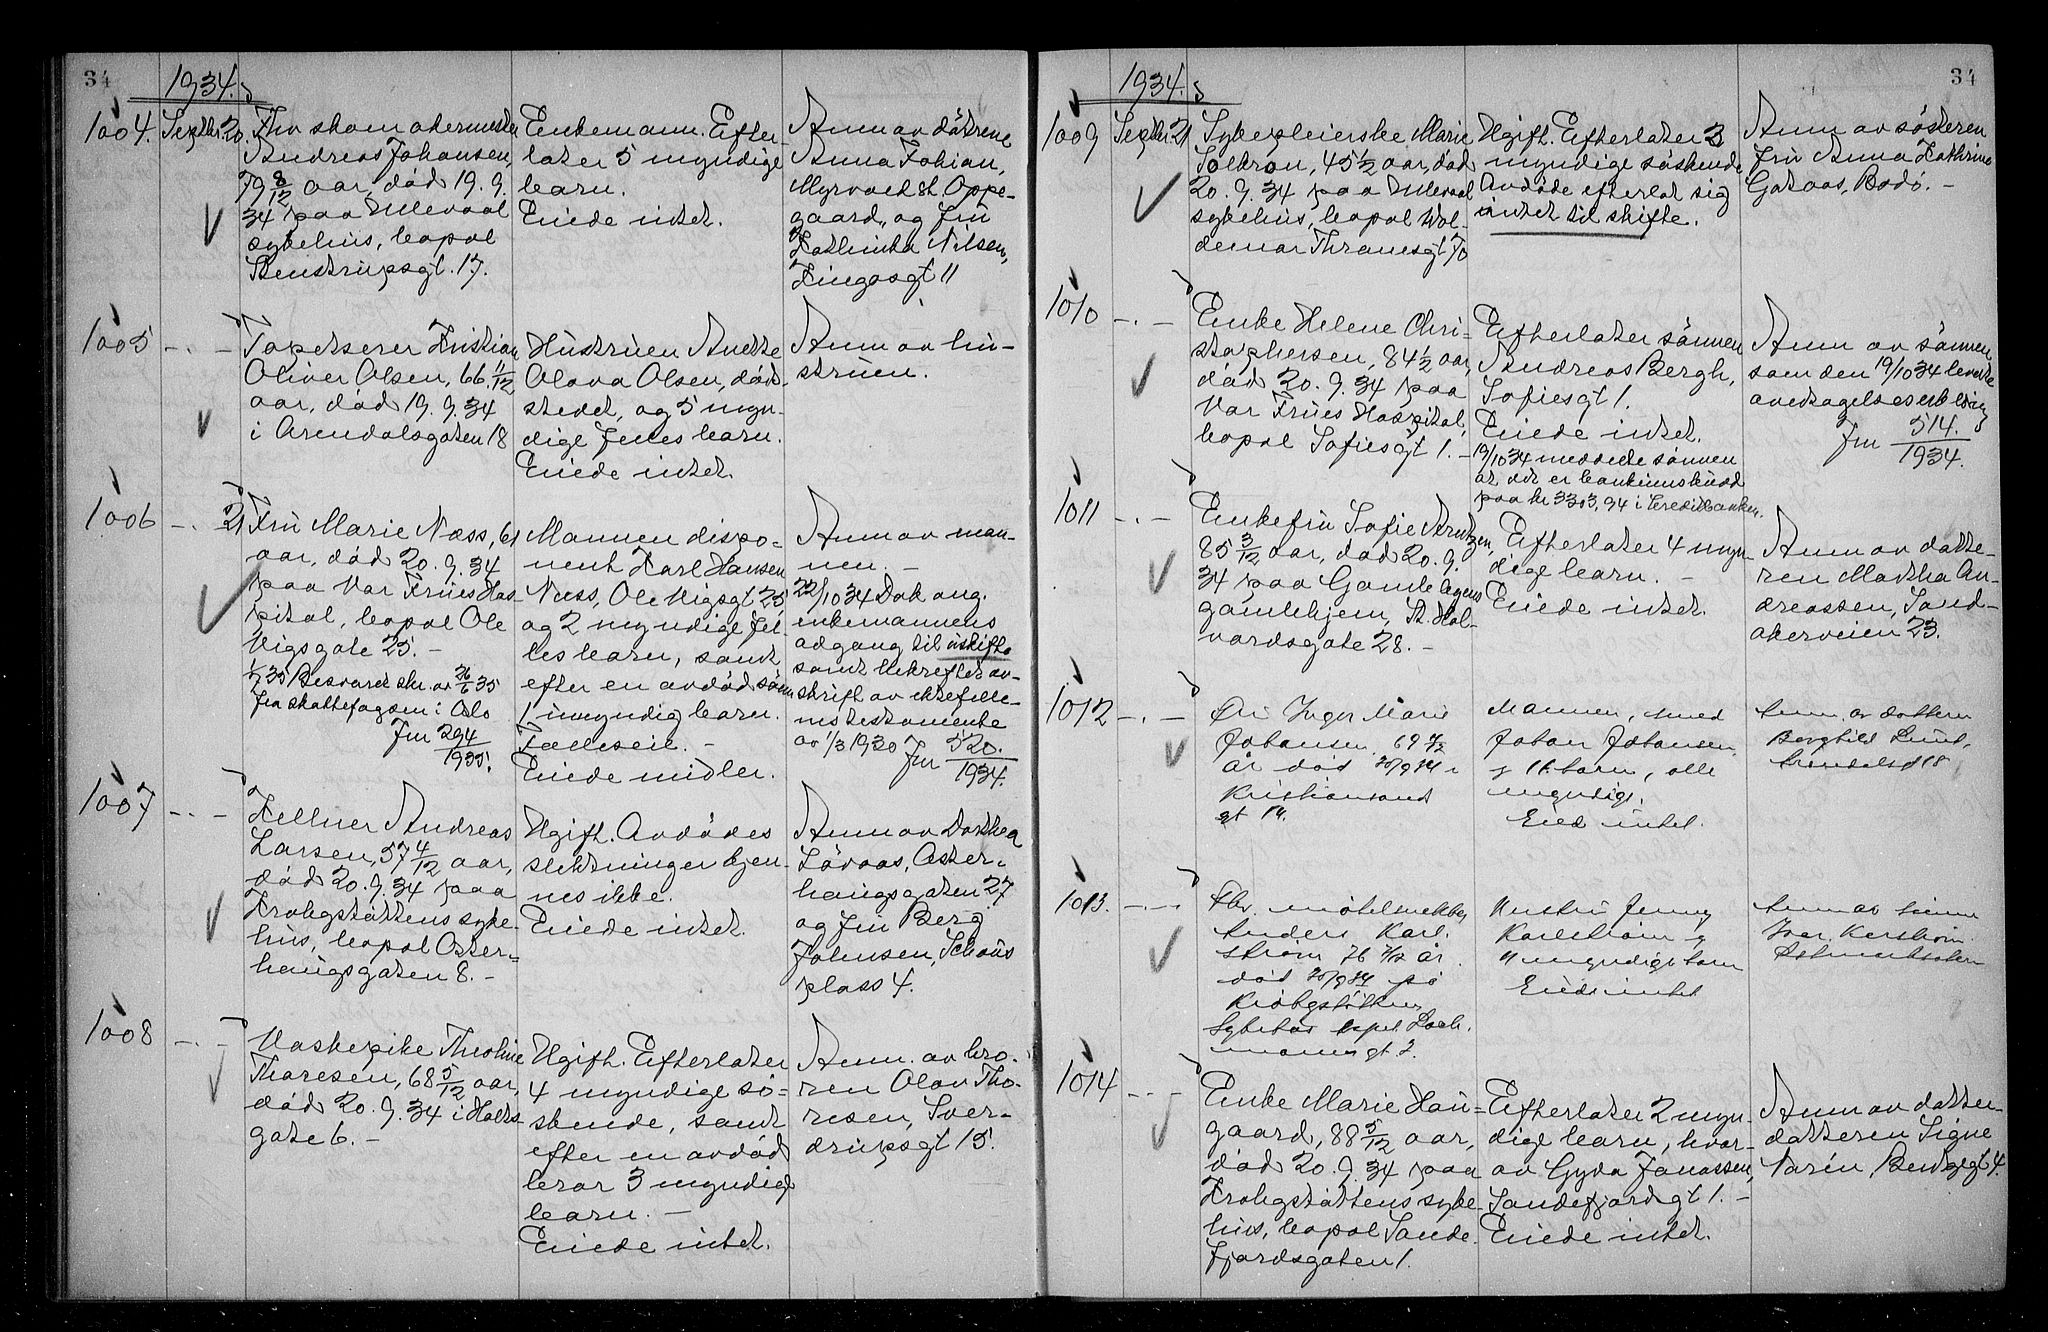 34
1934.
1004. Septbr. 20.
Fhv. skomakermester
Andreas Johansen,
79 8/12 aar, död 19.9.
34 paa Ullevaal
sykehus, bopæl
Stenstrupsgt. 17.
Enkemann. Efter-
later 5 myndige
barn.
Eiede intet.
Anm. av döttrene
Anna Fabian,
Myrvold st. Oppe-
gaard, og fru
Kathinka Nilsen,
Kingosgt 11
1005 -"-
Tapetserer Kristian
Oliver Olsen, 66 11/12
aar, död 19.9.34
i Arendalsgaten 18
Hustruen Anette
Olava Olsen, död-
stedet, og 5 myn-
dige felles barn.
Eiede intet.
Anm. av hu-
struen.
1006 -"- 21
Fru Marie Næss, 61
aar, död 20.9.34
paa Vor Frues Hos-
pital, bopæl Ole
Vigsgate 25. -
1/7 35 Besvaret skr. av 26/6 35
fra skattefogden i Oslo
Jnr 294/1935.
Mannen dispo-
nent Karl Hansen
Næss, Ole Vigsgt 25
og 2 myndige fel-
les barn, samt
efter en avdöd sönn
1 umyndig barn.
Felleseie. -
Eiede midler.
Anm av man-
nen. -
22/10 34 Dok ang.
enkemannens
adgang til uskifte
samt bekreftet av-
skrift av ektefelle-
nes testamente
av 1/3 1930 Jnr 520./1934.
1007 -"-
Kellner Andreas
Larsen, 57 4/12 aar,
död 20.9.34 paa
Krohgstöttens syke-
hus, bopæl Oster-
haugsgaten 8. -
Ugift. Avdödes
slektninger kjen-
nes ikke.
Eiede intet.
Anm av Dorthea
Lövaas, Oster-
haugsgaten 27
og fru Berg
Johnsen, Schous
plass 4.
1008 -"-
Vaskepike Theoline
Thoresen, 68 5/12 aar,
död 20.9.34 i Holts-
gate 6. -
Ugift. Efterlater
4 myndige sö-
skende, samt
efter en avdöd
bror 3 myndige
barn. -
Eiede intet.
Anm. av bro-
ren Olav Tho-
resen, Sver-
drupsgt 15.
34
1934.
1009 Septbr. 21
Sykepleierske Marie
Solkron, 45 1/2 aar, död
20.9.34 paa Ullevaal
sykehus, bopæl Wol-
demar Thranesgt 70
Ugift. Efterlater 3
myndige söskende
Avdöde efterlot sig
intet til skifte.
Anm av sösteren
fru Anna Kathrine
Gataas, Bodö. -
1010 -"-
Enke Helene Chri-
stophersen, 84 1/2 aar,
död 20.9.34 paa
Vor Frues Hospital,
bopæl Sofiesgt 1. -
Efterlater sönnen
Andreas Bergh,
Sofiesgt 1.
Eiede intet.
19/10 34 meddelte sönnen
at det er bankinnskudd
paa kr 3303,94 i Creditbanken.
Anm av sönnen
som den 19/10 34 leverte
avdragelseserklæring
Jnr 514./1934.
1011 -"-
Enkefru Sofie Arntzen,
85 3/12 aar, död 20.9.
34 paa Gamlebyens
gamlehjem, St. Hal-
vardsgate 28. -
Efterlater 4 myn-
dige barn. -
Eiede intet.
Anm av datte-
ren Martha An-
dreassen, Sand-
akerveien 23.
1012 -"-
Fru Inger Marie
Johansen 69 7/12
år död 20/9 34 i
Kristiansands
gt 14.
Mannen, smed
Johan Johansen
og 11 barn, alle
myndige.
Eied intet.
Anm. av datteren
Borghild Lund,
Arendalsgt 18
1013. -"-
Fhv. møbelsnekker
Anders Karl-
ström 76 7/12 år
död 20/9 34 på
Krohgstötten
Sykehus bopel Lach-
mannsgt 2.
Hustru Jenny
Karlström og
4 myndige barn
Eiede intet
Anm av sönnen
Ivar Karlström
1014 -"-
Enke Marie Hau-
gaard, 88 5/12 aar,
död 20.9.34 paa
Krohgstöttens syke-
hus, bopæl Sande-
fjordsgaten 1.
Efterlater 2 myn-
dige barn, hvor-
av Gyda Jonassen,
Sandefjordgt 1. -
Eiede intet.
Anm av datter-
datteren Signe
Norén, Bentsegt 4.